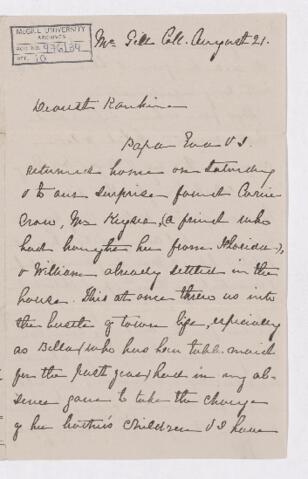 McGILL UNIVERSITY
ARCHIVES
ACC. NO.
REF.
Mc Gill Coll. August 21.
Dearest Rankine
Papa Eva & I
returned home on Saturday
& to our surprise found Carrie
Crow, Mr Keyser, (a friend who
had brought her from Florida),
& William already settled in the
house. This at once threw us into
the bustle of town life, especially
as Bella (who has been table-maid
for the past year) had in my ab-
sence gone to take the charge
of her brother's children & I have